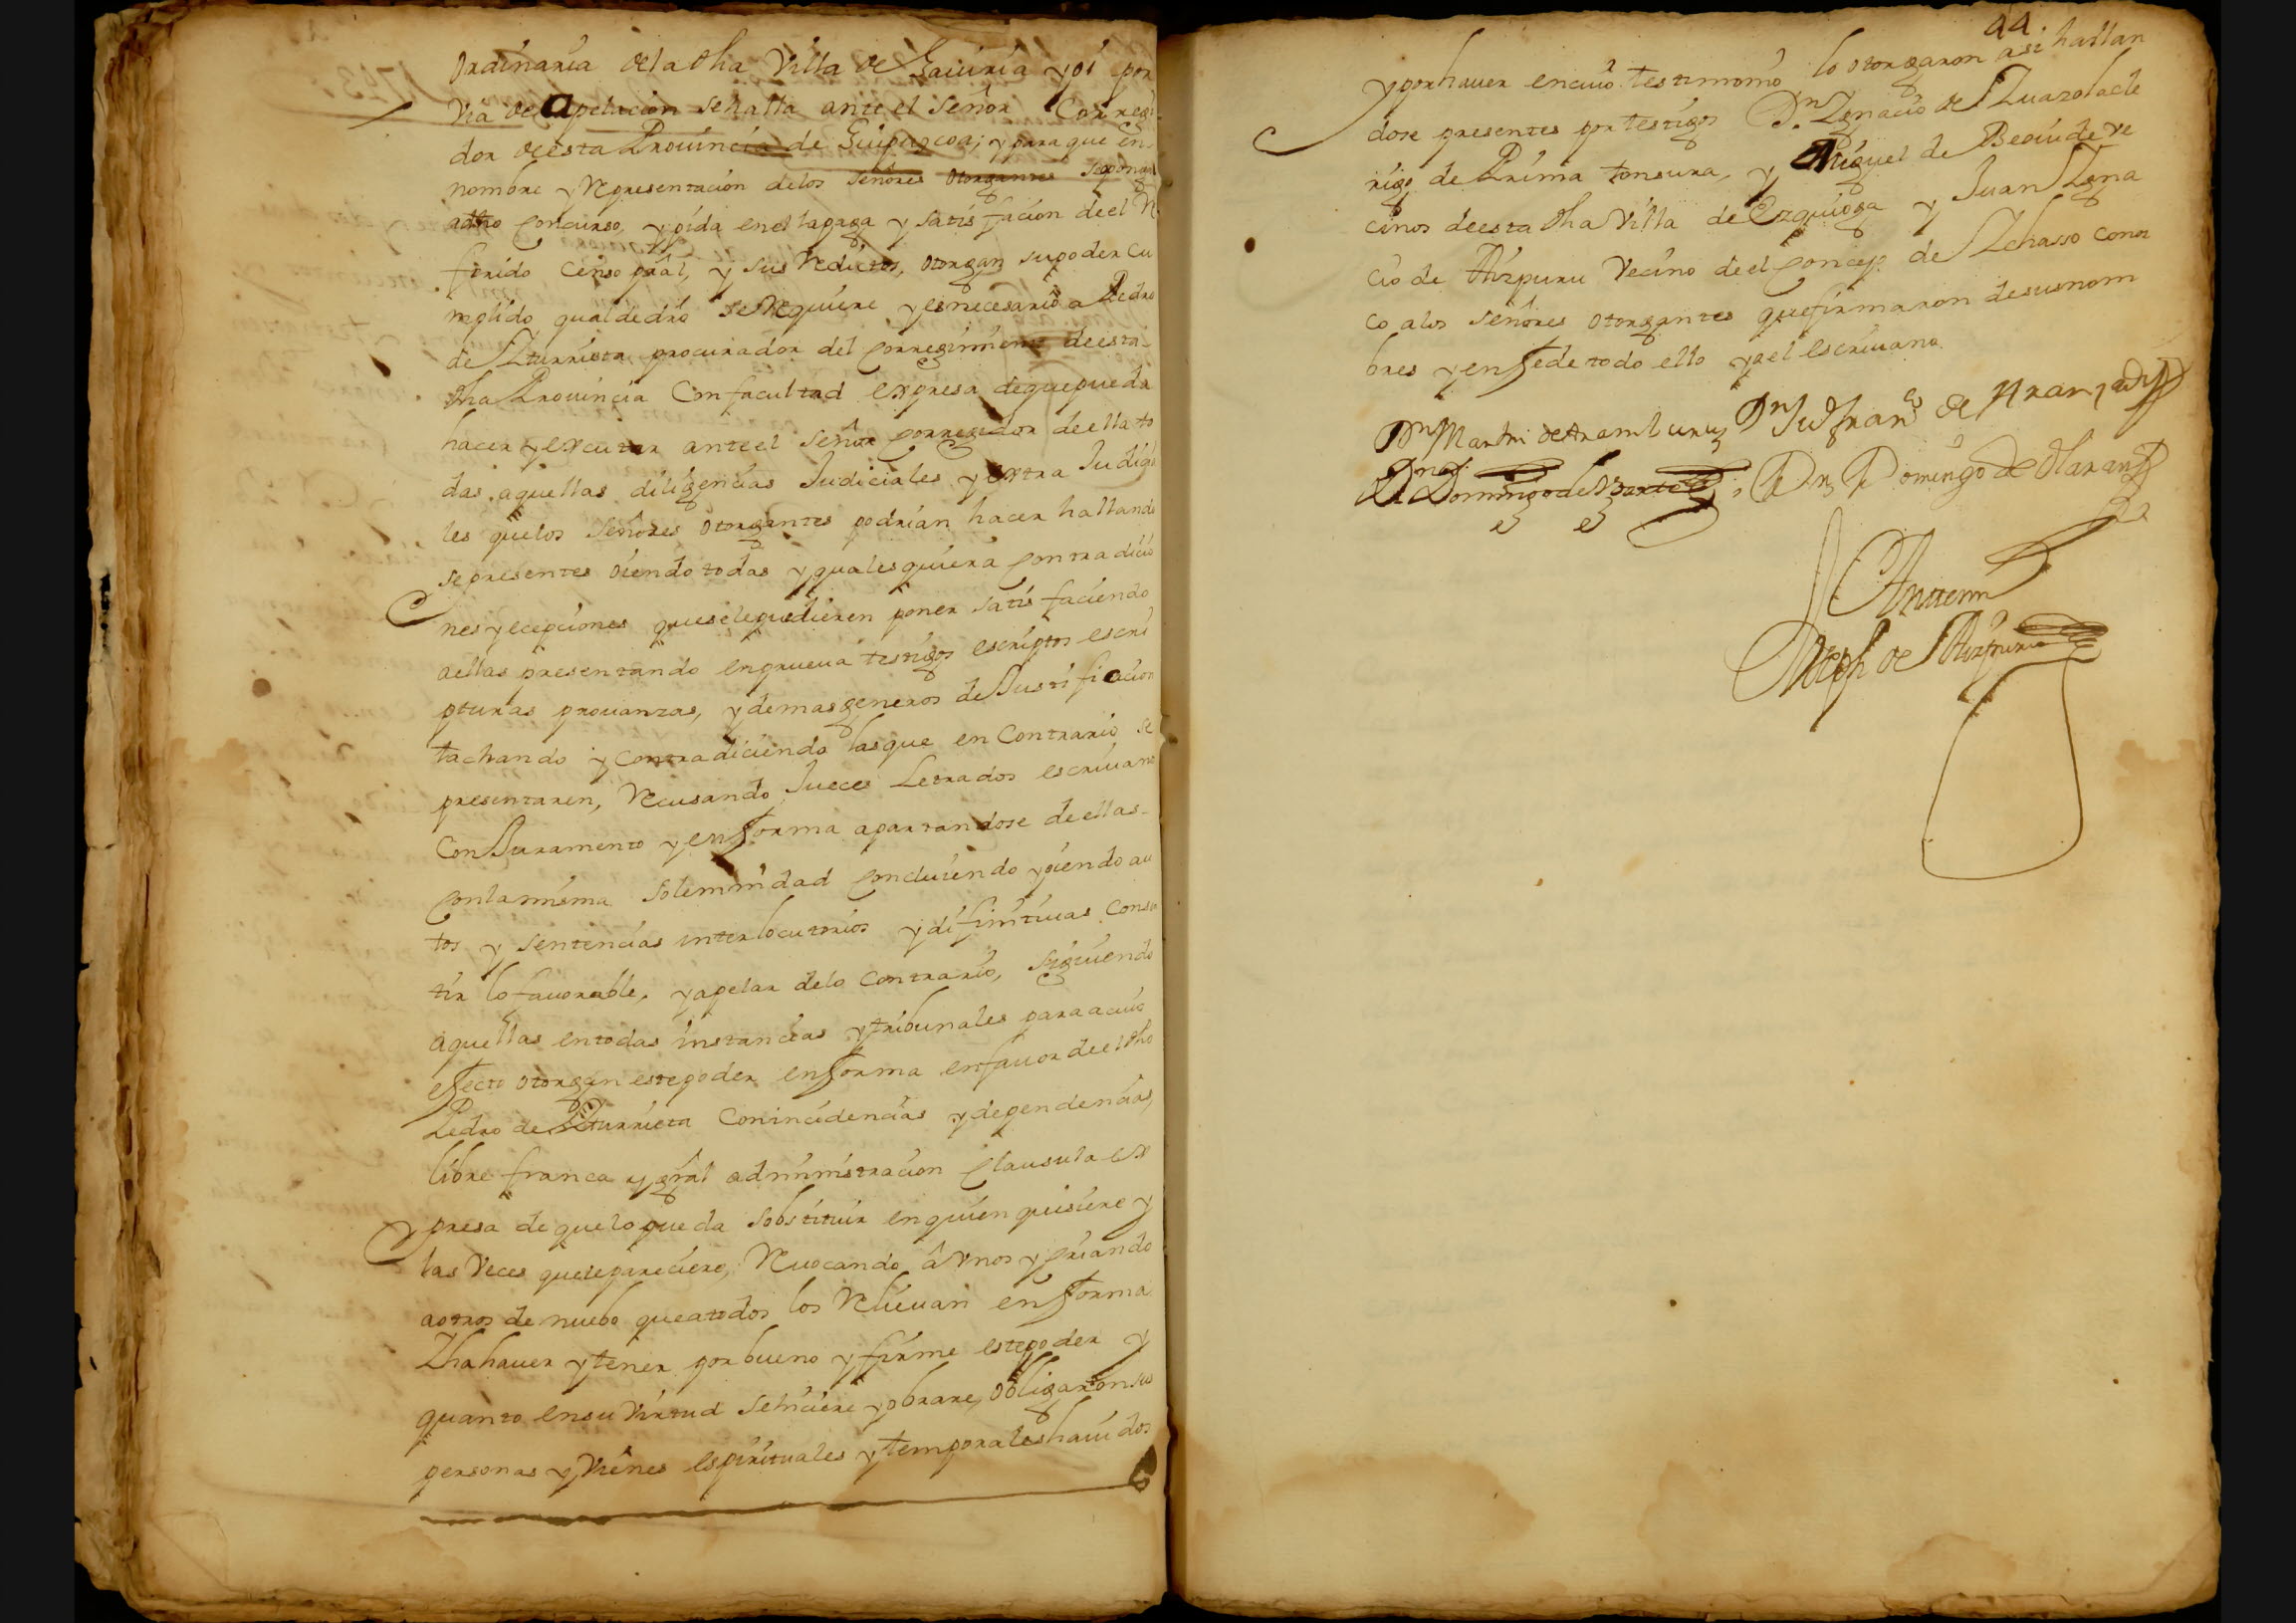 Ordinaria dela dha Villa de Gaviria y oi por
Via de apelacion sehalla ante el señor Corregi
dor deesta Provincia de Guipuzcoa; y para que en
nombre y Representacion delos señores otorgantes seponga
adho Concurso, y pida enel lapaga y satisfacion deel Re
ferido Censo pral, y sus Reditos, otorgan supoder cu
mplido qual dedro se Requiere y es necesario a Pedro
de Yturrieta procurador del Corregimiento deesta
dha Provincia Con facultad expresa dequepueda
hacer y executar anteel señor Corregidor deella to
das aquellas diligencias Judiciales y extra Judicia
les quelos señores otorgantes podrian hacer hallando
se presentes oiendo todas y qualesquiera Contradicio
nes y ecepciones queselepudieren poner satisfaciendo
aellas presentando enprueva testigos escriptos escri
pturas provanzas, y demas generos de Justificacion
tachando y Contradiciendo lasque en Contrario se
presentaren, Recusando Jueces Letrados escrivanos
Con Juramento y en forma apartandose deellas
Conlamisma solemnidad Concluiendo y oiendo au
tos y sentencias interlocutorios y difinitivas Consen
tir lo favorable, y apelar delo Contrario, siguiendo
aquellas entodas instancias y tribunales para acuio
efecto otorgan estepoder enforma enfavor deel dho
Pedro de Yturrieta Conincidencias y dependencias,
libre franca y gral administracion Clausula ex
presa de quelo pueda sobstituir enquien quisiere y
las Veces quelepareciere, Revocando â Vnos y Criando
aotros de nuebo queatodos los Relievan en forma
Yhahaver y tener por bueno y firme estepoder y
quanto ensu Virtud sehiciere y obrare, obligaron sus
personas y Vienes espirituales y temporales havidos
44
y porhaver encuio testimonio lo otorgaron asi hallan
dose presentes por testigos Dn Ygnacio de Zuazolacle
rigo de Prima tonsura, y Miguel de Beouide ve
cinos deesta dha Villa de Ezquioga y Juan Ygna
cio de Aizpuru Vecino deel Concejo de Ychasso conoz
co alos señores otorgantes quefirmaron desusnom
bres y enfee de todo ello yo el escrivano
Dn Martin de Aramburu Dn Ju Franco de Aranzadi
Dn Domingo de Dn Domingo de Olaran
Antte mi
Joseph de Aizpuru